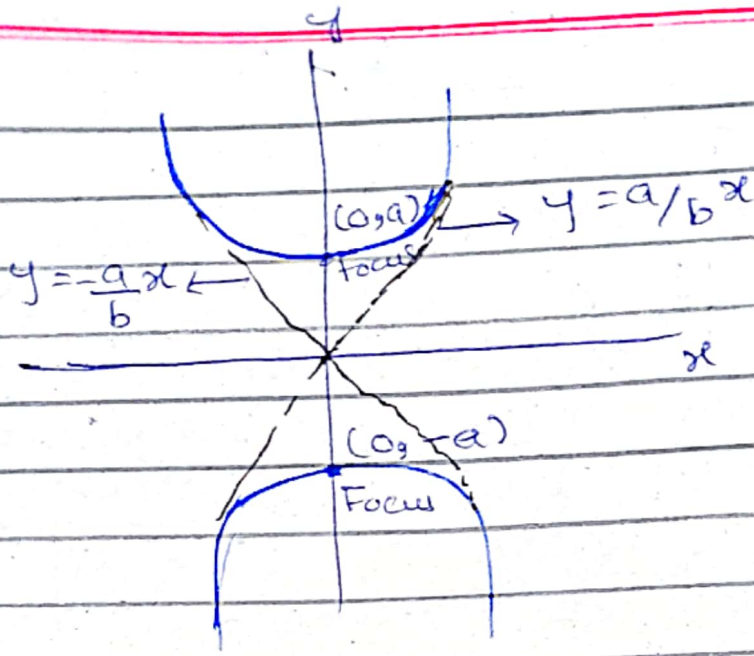 y
(0,a)
y = a/b x
Focus
y = -a/b x
x
(0, -a)
Focus